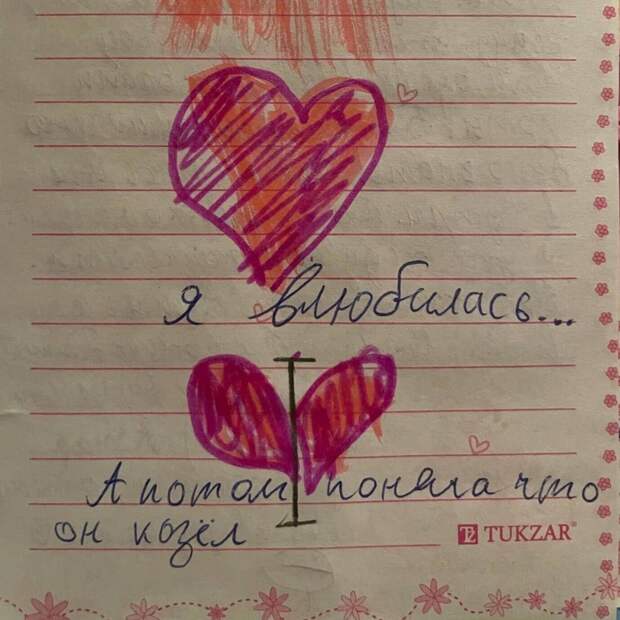 я влюбилась...
А потом поняла что
он козёл
TUKZAR